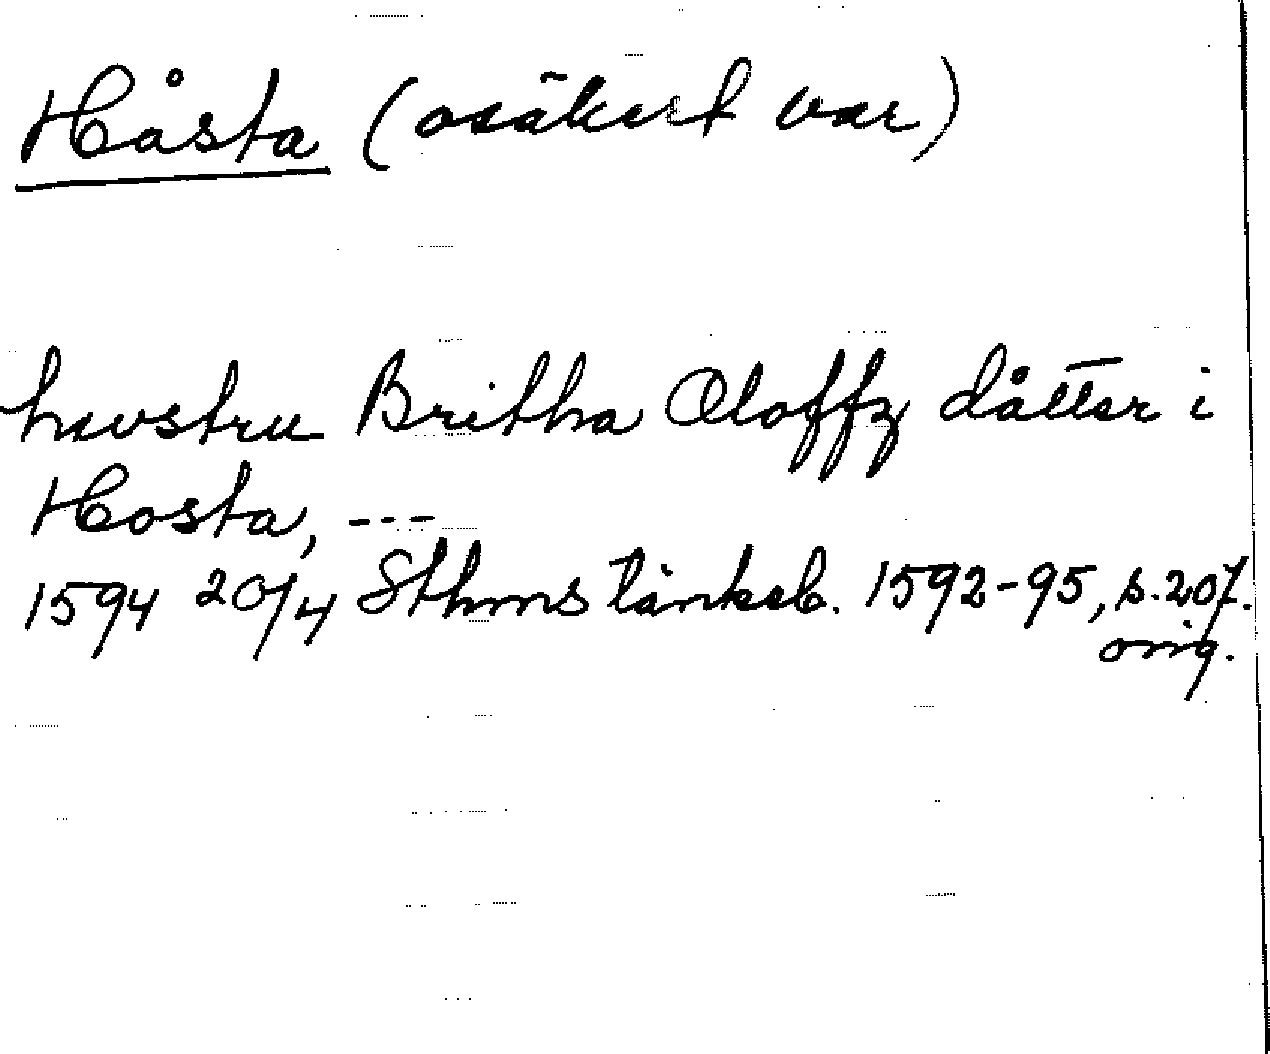 Håsta (osäkert var)
hustru Britha Oloffz dåtter i
Hosta, ---
1594 20/4 Sthms tänkeb. 1592-95, s. 207.
orig.